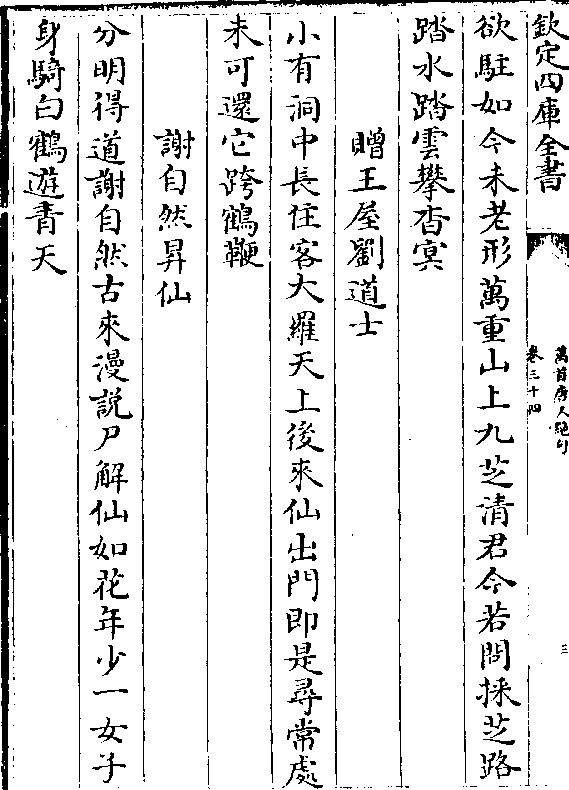 欽定四庫全書
萬首唐人絶句
卷三十四
三
欲駐如今未老形萬重山上九芝清君今若問採芝路
踏水踏雲攀杳冥
贈王屋劉道士
小有洞中長住客大羅天上後來仙出門即是尋常處
未可還它跨鶴鞭
謝自然昇仙
分明得道謝自然古來漫説尸解仙如花年少一女子
身騎白鶴遊青天